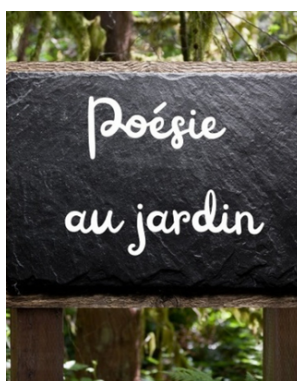 Poésie
au jardin